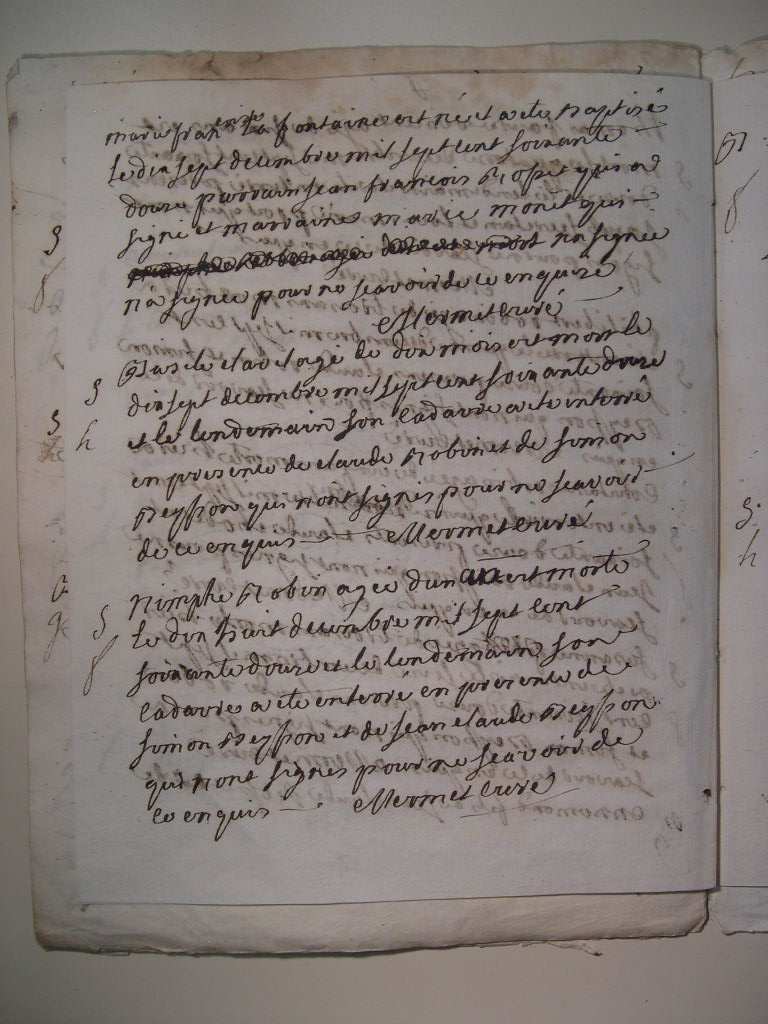 marie fran la fontaine est né et a ete Baptisé
le dix sept decembre mil sept cent soixante
douze parrain jean francois qui a
signé et marraine marie monet qui
na signee
n'a signee pour ne sçavoir de ce enquise
Mermet curé
agé de dix mois est mort le
dix sept decembre mil sept cent soixante douze
et le lendemain son cadavre a ete enterré
en presence de claude Robin et de simon
Reysson qui n'ont signés pour ne sçavoir
de ce enquis Mermet curé
Nimphe Robin agée d'un an est morte
le dix huit decembre mil sept cent
soixante douze et le lendemain son
cadavre a ete enterré en presence de
simon Reysson et de jean claude Reysson
qui n'ont signés pour ne sçavoir de
ce enquis Mermet curé